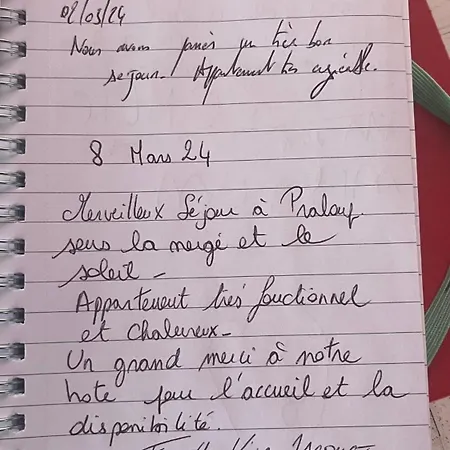 02/03/24
Nous avons passés un très bon
sejour. Appartement très agréable.
8 Mars 24
Merveilleux Séjour à Praloup.
sous la neige et le
soleil -
Appartement très fonctionnel
et Chaleureux -
Un grand merci à notre
hote pour l'accueil et la
disponibilité.